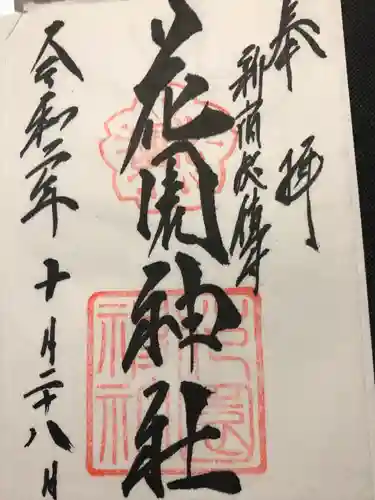 奉拝
新宿総鎮守
花園神社
令和二年
十月二十八日